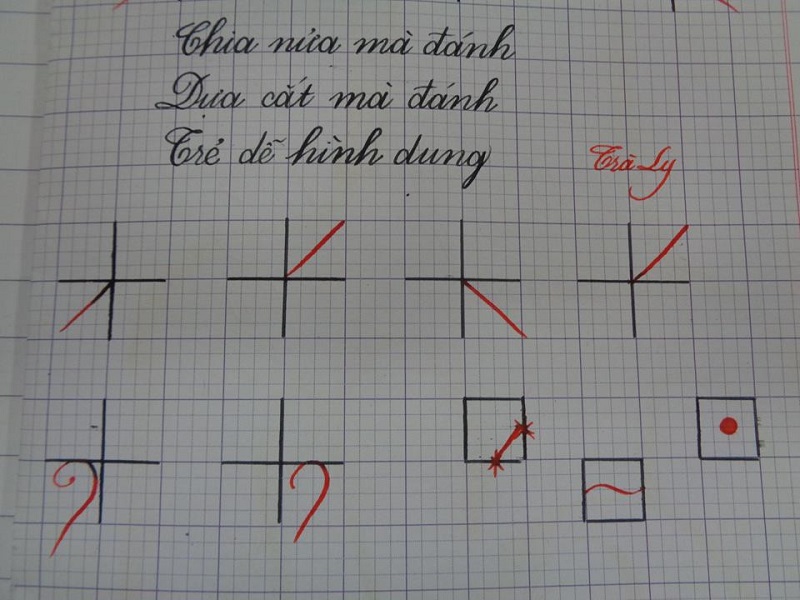 Chia nửa mà đánh
Dựa cắt mà đánh
Trẻ dễ hình dung
Trà Ly